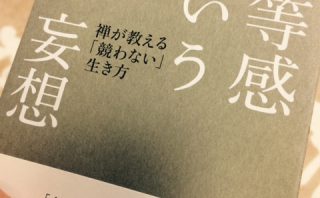 等感
いう
妄想
禅が教える
「競わない」
生き方